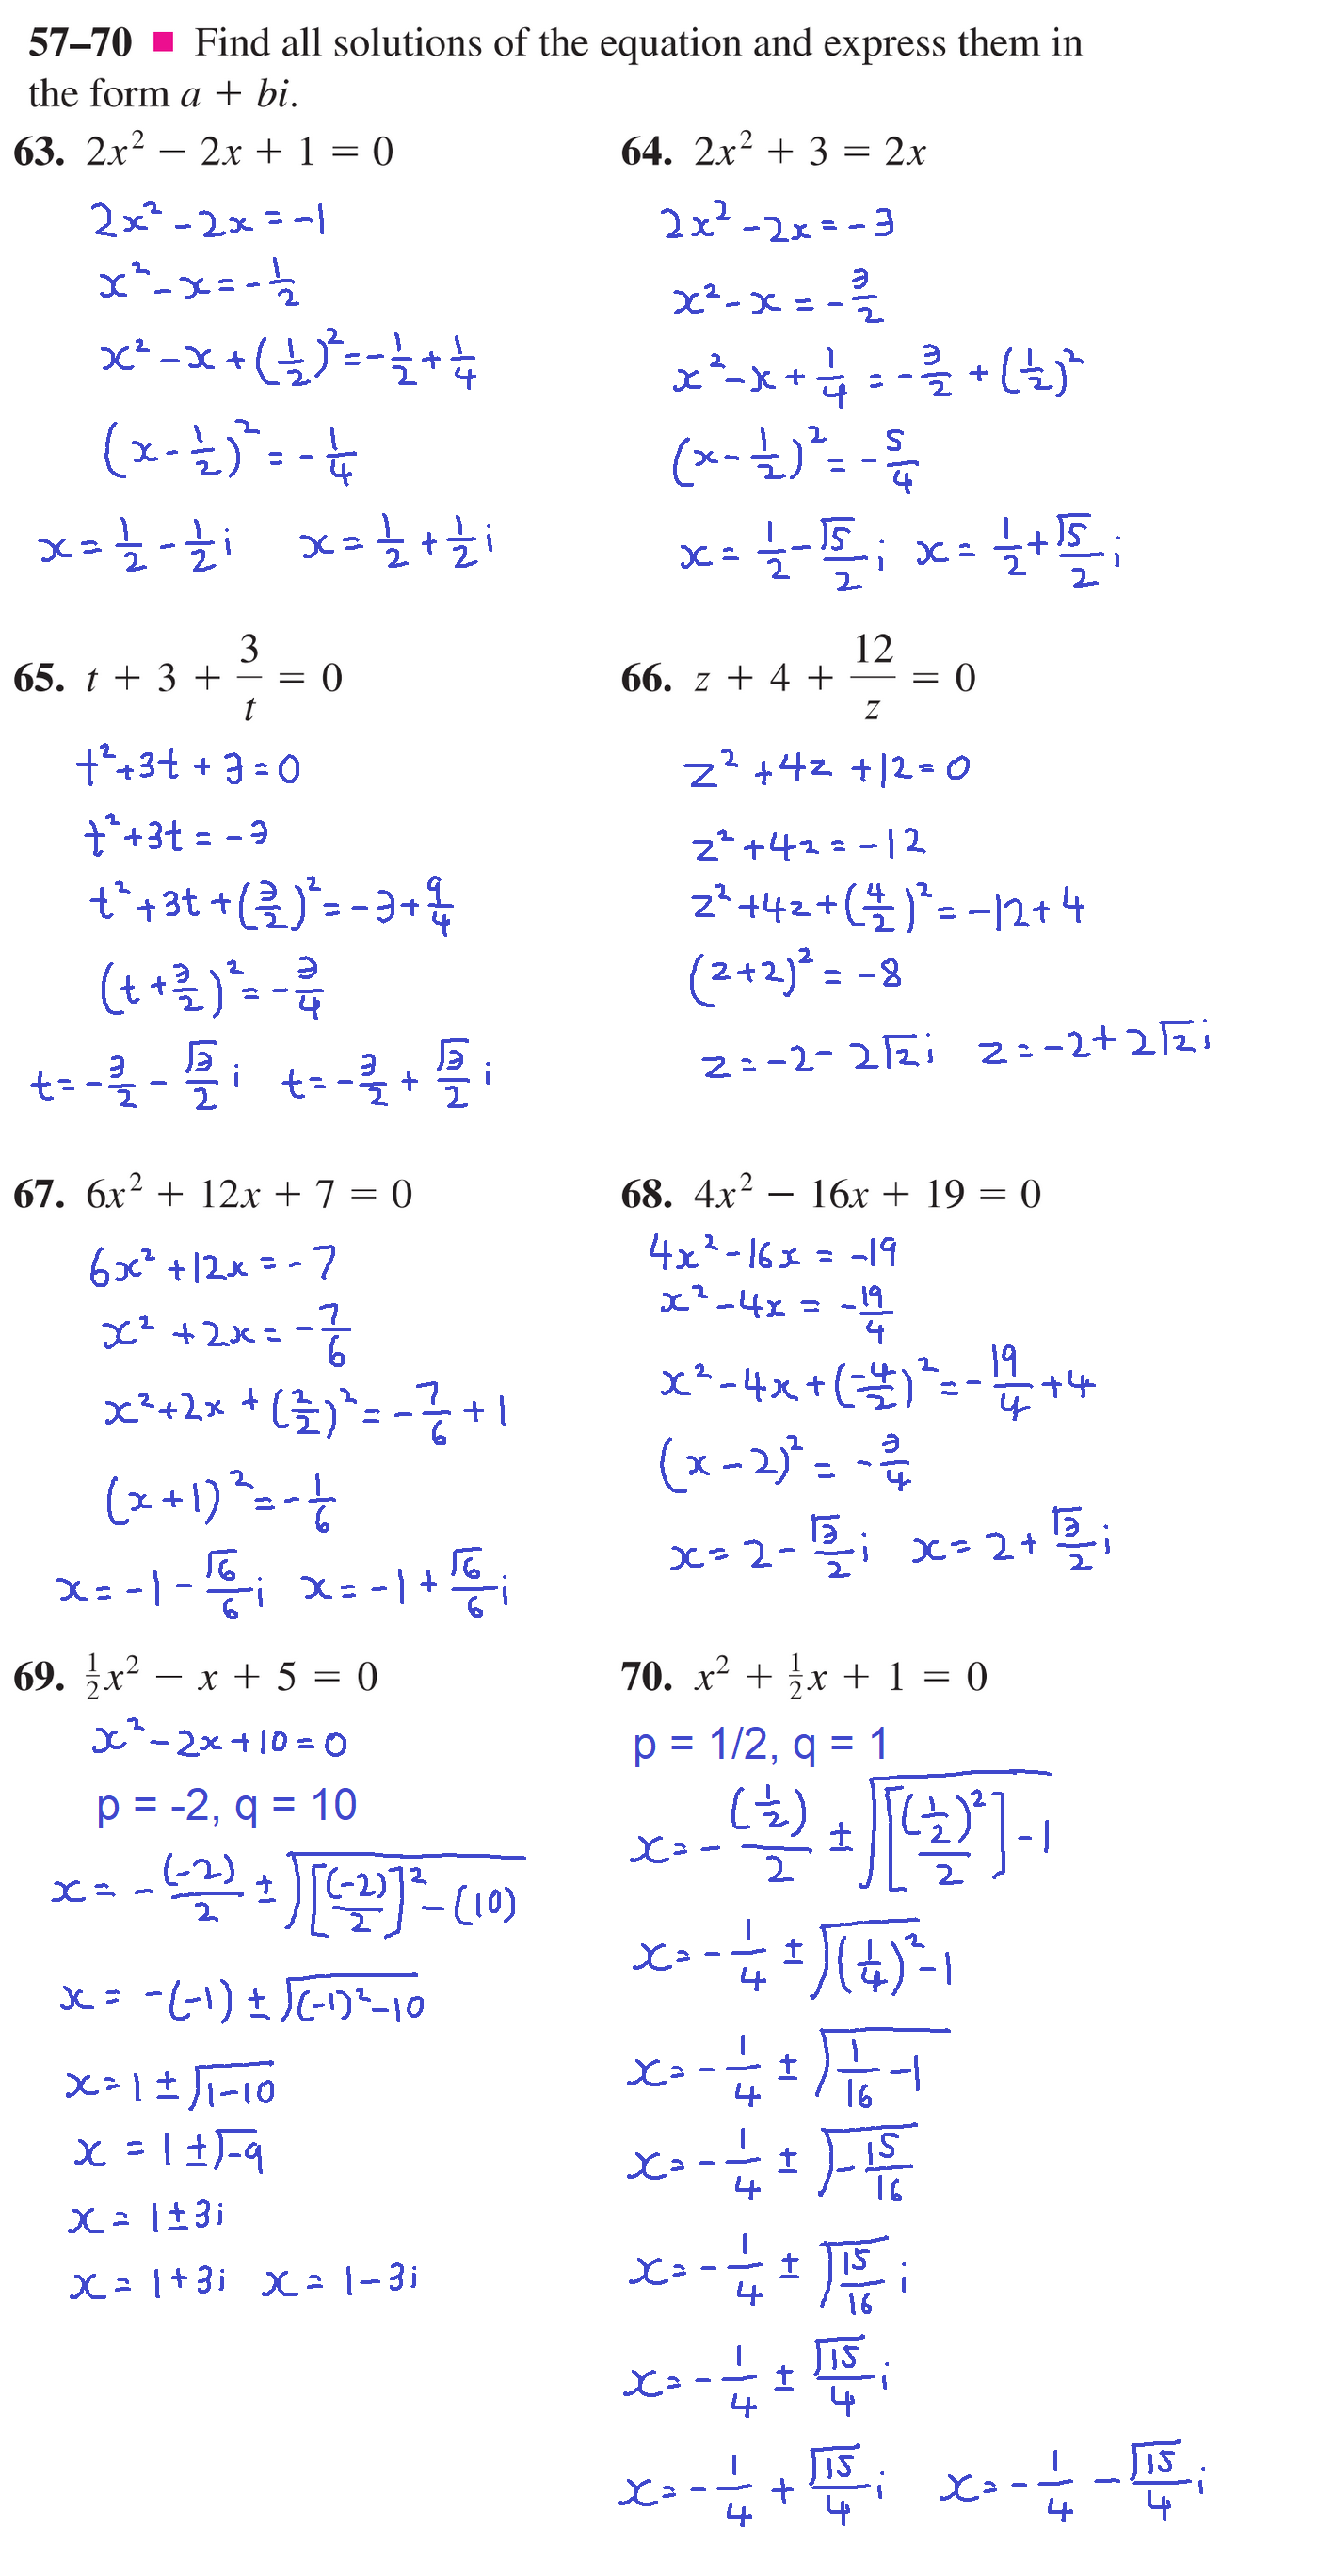 57–70 ■ Find all solutions of the equation and express them in
the form a + bi.
63. 2x² − 2x + 1 = 0
2x² - 2x = -1
x² - x = -1/2
x² - x + (1/2)² = -1/2 + 1/4
(x - 1/2)² = -1/4
x = 1/2 - 1/2 i x = 1/2 + 1/2 i
64. 2x² + 3 = 2x
2x² - 2x = -3
x² - x = -3/2
x² - x + 1/4 = -3/2 + (1/2)²
(x - 1/2)² = -5/4
x = 1/2 - √5/2 i x = 1/2 + √5/2 i
65. t + 3 + 3/t = 0
t² + 3t + 3 = 0
t² + 3t = -3
t² + 3t + (3/2)² = -3 + 9/4
(t + 3/2)² = -3/4
t = -3/2 - √3/2 i t = -3/2 + √3/2 i
66. z + 4 + 12/z = 0
z² + 4z + 12 = 0
z² + 4z = -12
z² + 4z + (4/2)² = -12 + 4
(z + 2)² = -8
z = -2 - 2√2 i z = -2 + 2√2 i
67. 6x² + 12x + 7 = 0
6x² + 12x = -7
x² + 2x = -7/6
x² + 2x + (2/2)² = -7/6 + 1
(x + 1)² = -1/6
x = -1 - √6/6 i x = -1 + √6/6 i
68. 4x² − 16x + 19 = 0
4x² - 16x = -19
x² - 4x = -19/4
x² - 4x + (-4/2)² = -19/4 + 4
(x - 2)² = -3/4
x = 2 - √3/2 i x = 2 + √3/2 i
69. ½x² − x + 5 = 0
x² - 2x + 10 = 0
p = -2, q = 10
x = -(-2)/2 ± √([(-2)/2]² - (10))
x = -(-1) ± √((-1)² - 10)
x = 1 ± √(1 - 10)
x = 1 ± √-9
x = 1 ± 3i
x = 1 + 3i x = 1 - 3i
70. x² + ½x + 1 = 0
p = 1/2, q = 1
x = -(1/2)/2 ± √([(1/2)²/2] - 1)
x = -1/4 ± √((1/4)² - 1)
x = -1/4 ± √(1/16 - 1)
x = -1/4 ± √(-15/16)
x = -1/4 ± √(15/16) i
x = -1/4 ± √15/4 i
x = -1/4 + √15/4 i x = -1/4 - √15/4 i